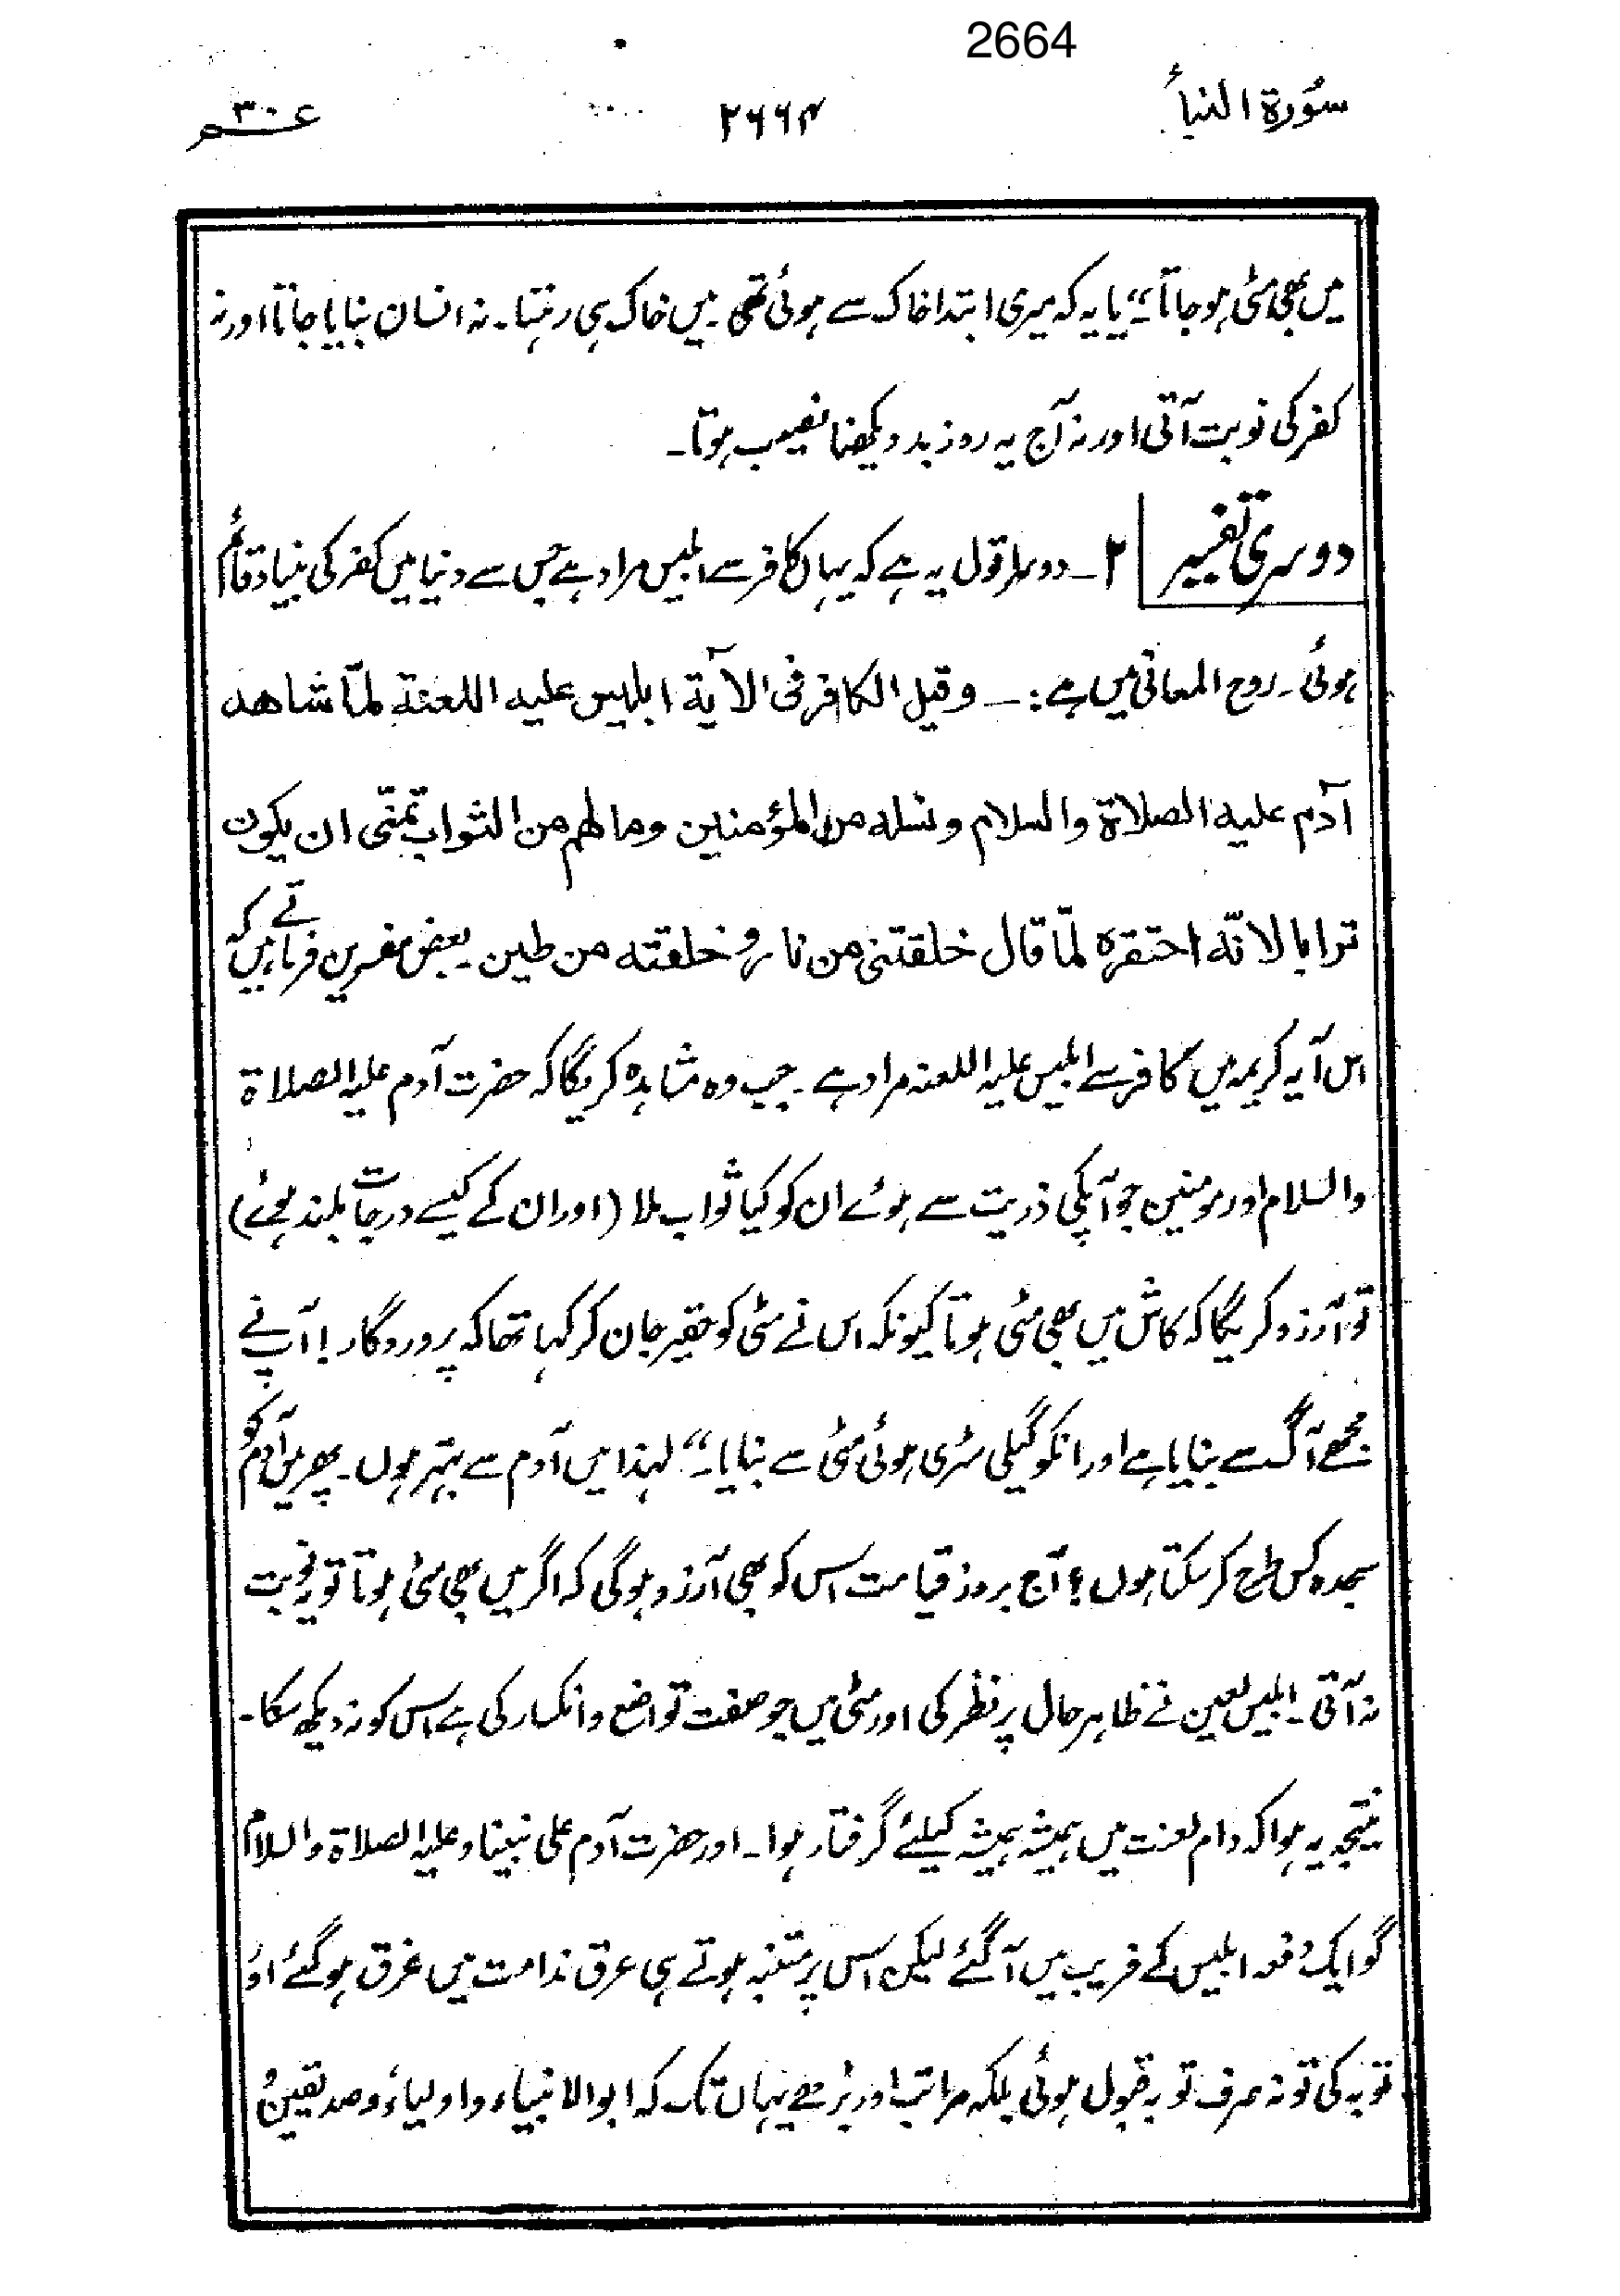 2664
سُوْرة النبأ
۲۶۶۴
عم ۳۰
میں بھی مٹی ہو جاتا۔" یا یہ کہ میری ابتدا خاک سے ہوئی تھی۔ میں خاک ہی رہتا۔ نہ انسان بنایا جاتا اور نہ
کفر کی نوبت آتی اور نہ آج یہ روز بد دیکھنا نصیب ہوتا۔
دوسری تفسیر
۲ـ دوسرا قول یہ ہے کہ یہاں کافر سے ابلیس مراد ہے جس سے دنیا میں کفر کی بنیاد قائم
ہوئی۔ روح المعانی میں ہے :ـ وقیل الکافر فی الآیة ابلیس علیه اللعنة لمّا شاهد
آدم علیه الصلاة والسلام ونسله من المؤمنین ومالهم من الثواب تمنّی ان یکون
ترابا لانّه احتقره لمّا قال خلقتنی من نار وخلقته من طین۔ بعض مفسرین فرماتے ہیں کہ
اس آیہ کریمہ میں کافر سے ابلیس علیہ اللعنہ مراد ہے۔ جب وہ مشاہدہ کریگا کہ حضرت آدم علیہ الصلاة
والسلام اور مومنین جو آپکی ذریت سے ہوئے ان کو کیا ثواب ملا (اور ان کے کیسے درجات بلند ہوئے)
تو آرزو کریگا کہ کاش میں بھی مٹی ہوتا کیونکہ اس نے مٹی کو حقیر جان کر کہا تھا کہ پروردگار! آپنے
مجھے آگ سے بنایا ہے اور انکو گیلی سڑی ہوئی مٹی سے بنایا۔" لہذا میں آدم سے بہتر ہوں۔ پھر میں آدم کو
سجدہ کس طرح کر سکتا ہوں؟ آج بروز قیامت اس کو بھی آرزو ہوگی کہ اگر میں بھی مٹی ہوتا تو یہ نوبت
نہ آتی۔ ابلیس لعین نے ظاہر حال پر نظر کی اور مٹی میں جو صفت تواضع و انکسار کی ہے اس کو نہ دیکھ سکا۔
نتیجہ یہ ہوا کہ دام لعنت میں ہمیشہ ہمیشہ کیلئے گرفتار ہوا۔ اور حضرت آدم علی نبینا وعلیہ الصلاة والسلام
گو ایک دفعہ ابلیس کے فریب میں آگئے لیکن اس پر متنبہ ہوتے ہی عرق ندامت میں غرق ہوگئے اور
توبہ کی تو نہ صرف توبہ قبول ہوئی بلکہ مراتب اور بڑھے یہاں تک کہ ابوالانبیاء واولیاء وصدیقین